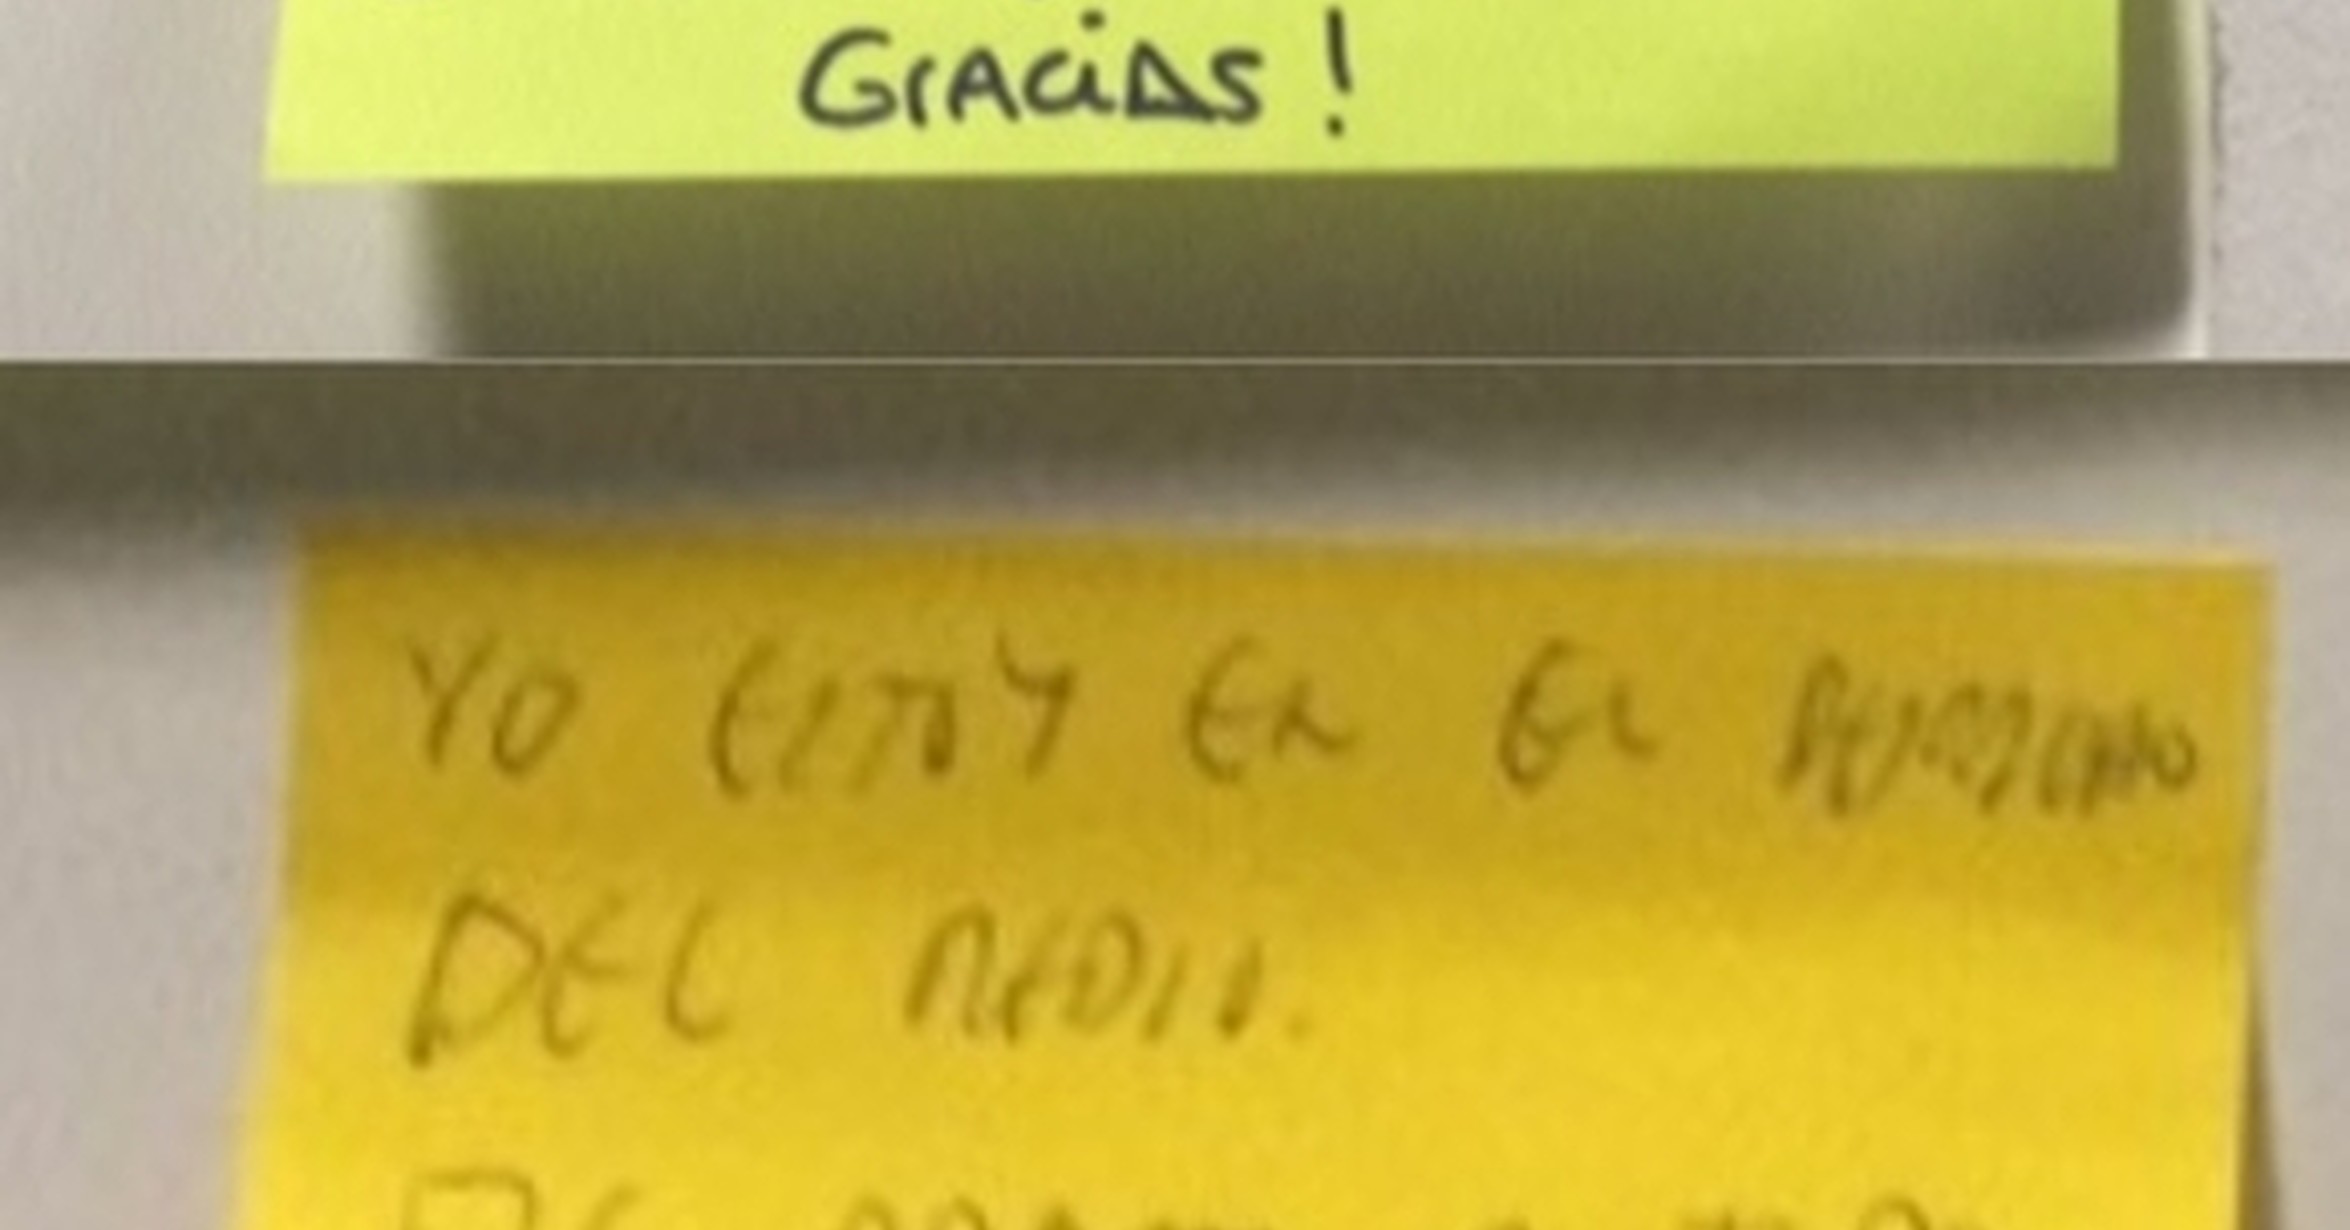 Gracias!
YO ESTOY EN EL
DEL MEDIO.